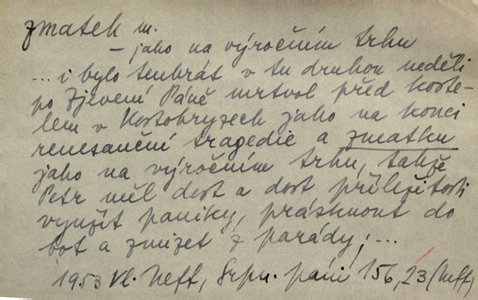 zmatek m.
– jako na výročním trhu
... i bylo tenkrát v tu druhou neděli
po Zjevení Páně mrtvol před koste-
lem v Kostohryzech jako na konci
renesanční tragedie a zmatku
jako na výročním trhu, takže
Petr měl dost a dost příležitosti
využít paniky, prásknout do
bot a zmizet z parády; ...
1953 Vl. Neff, Srpn. páni 156, 23 (Neff)